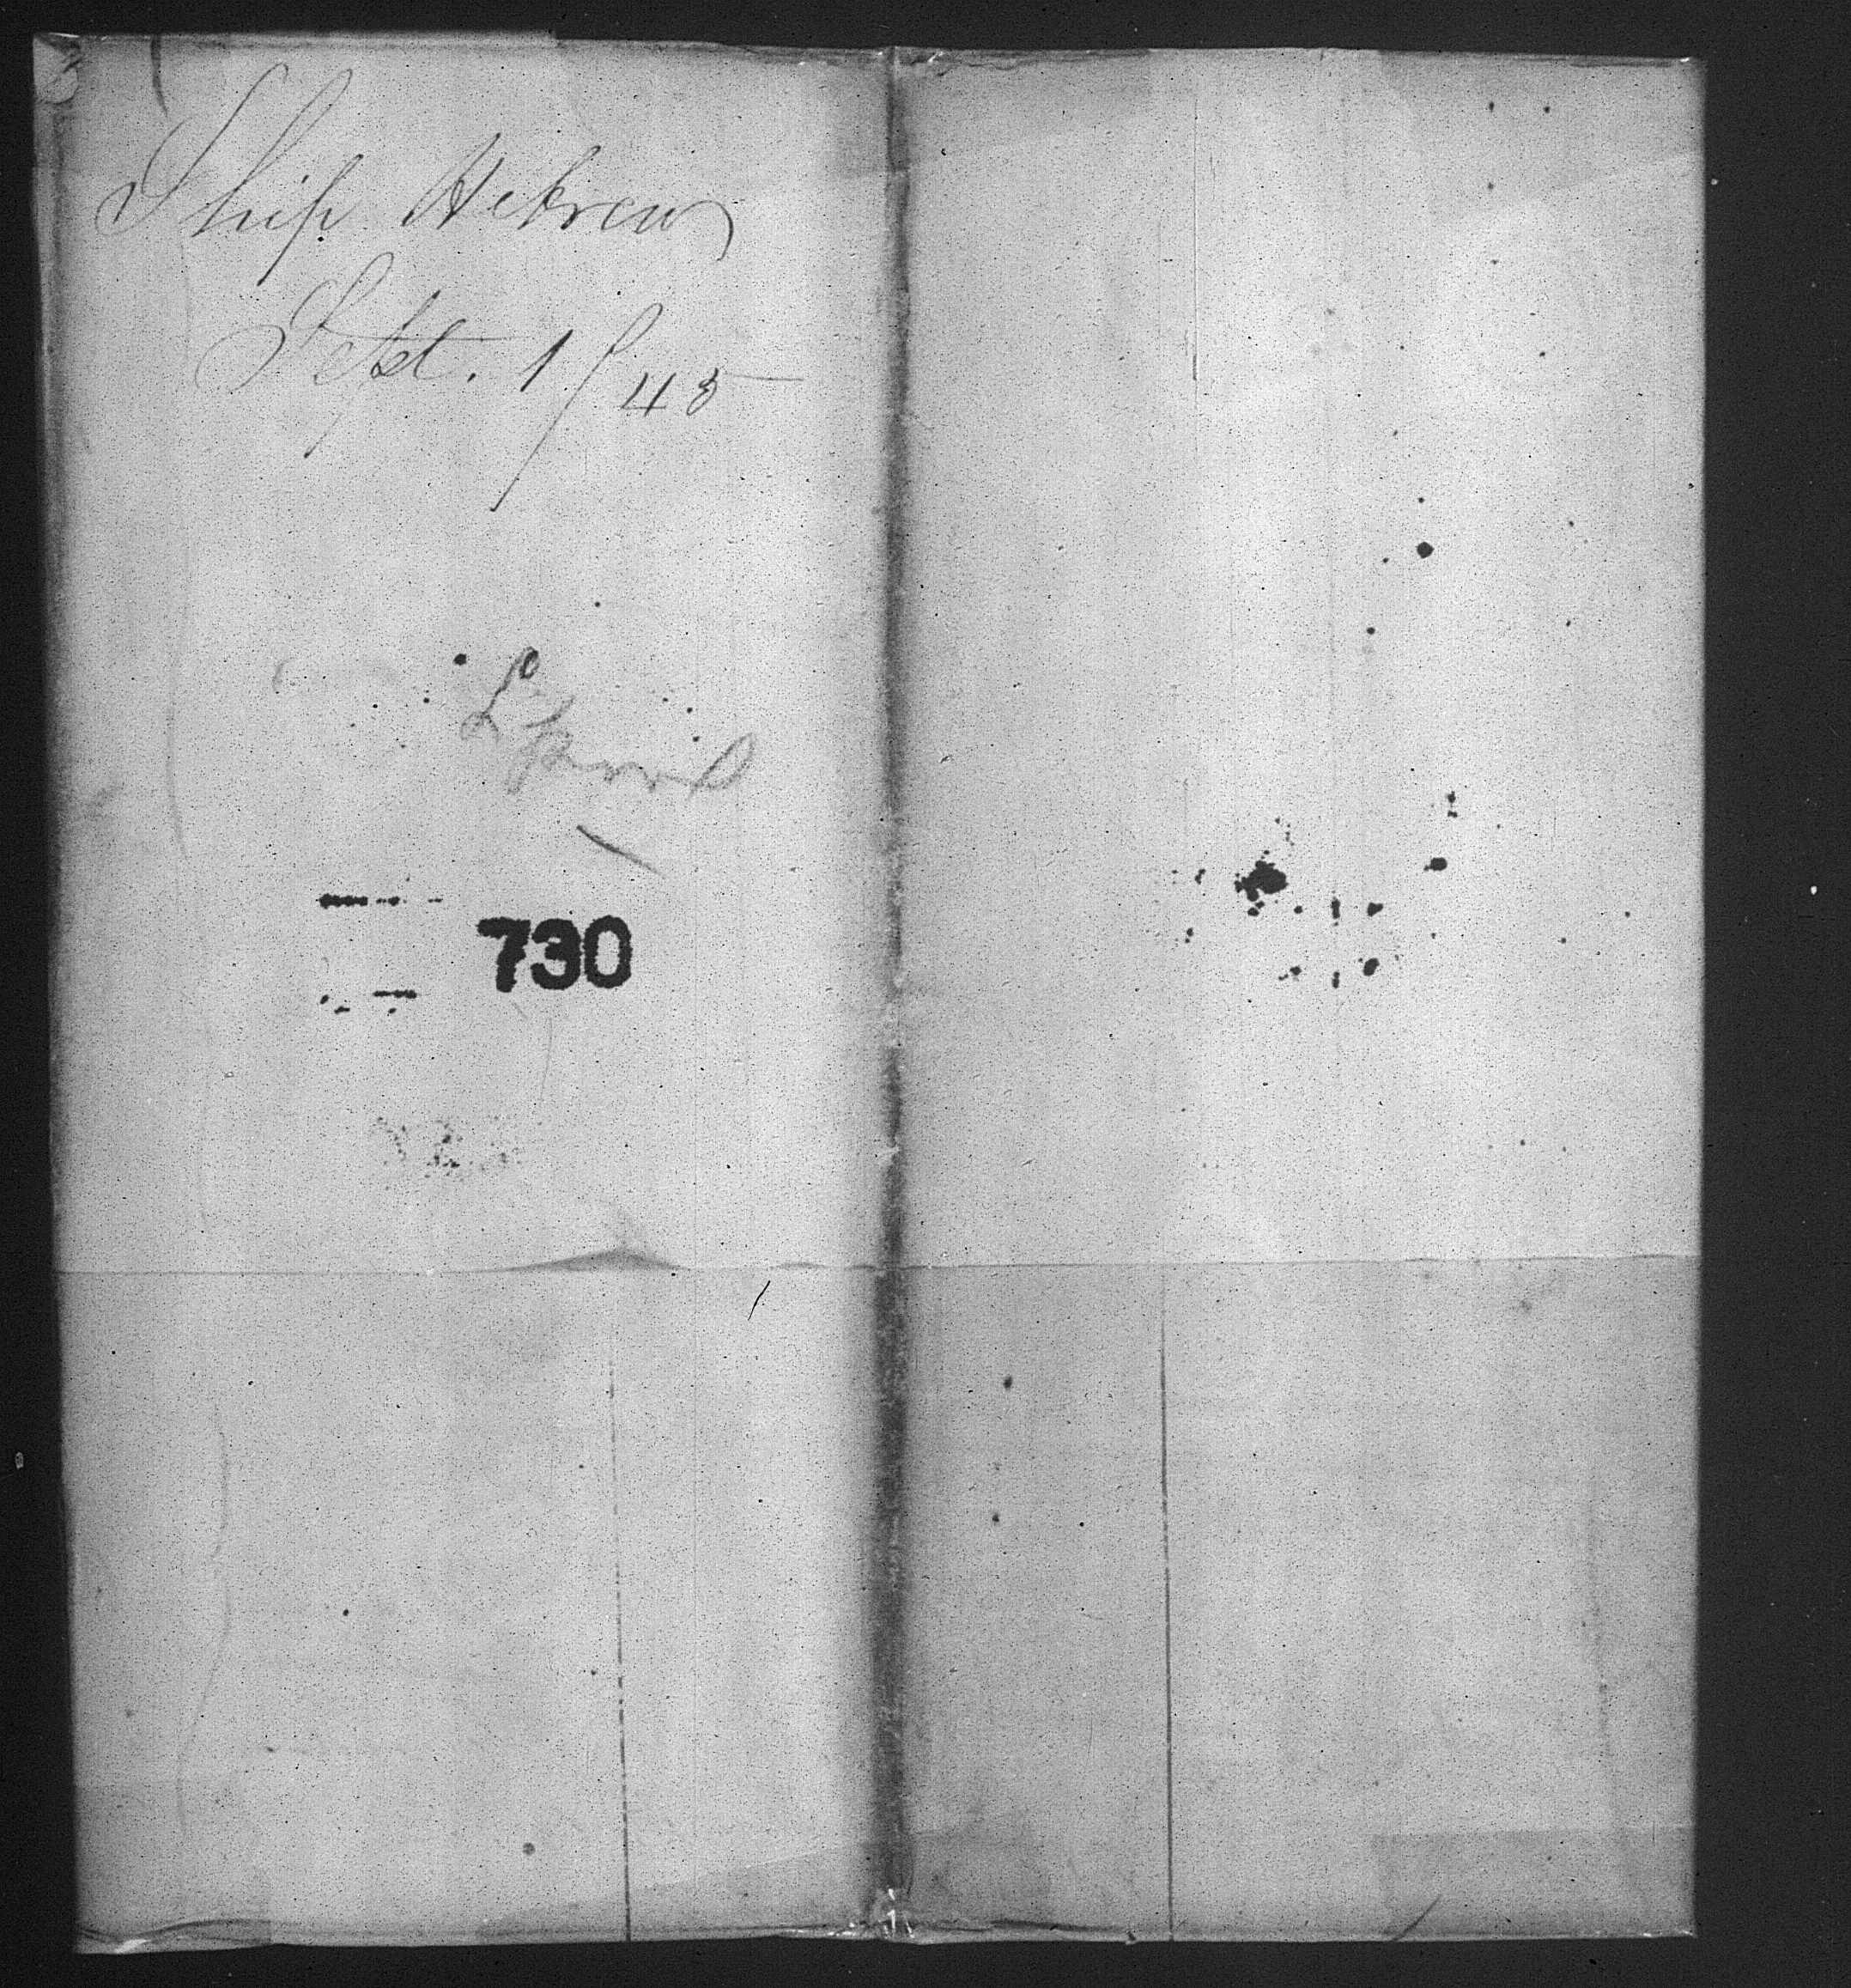 Ship Hebrew
Sept. 1/45
L'pool
730